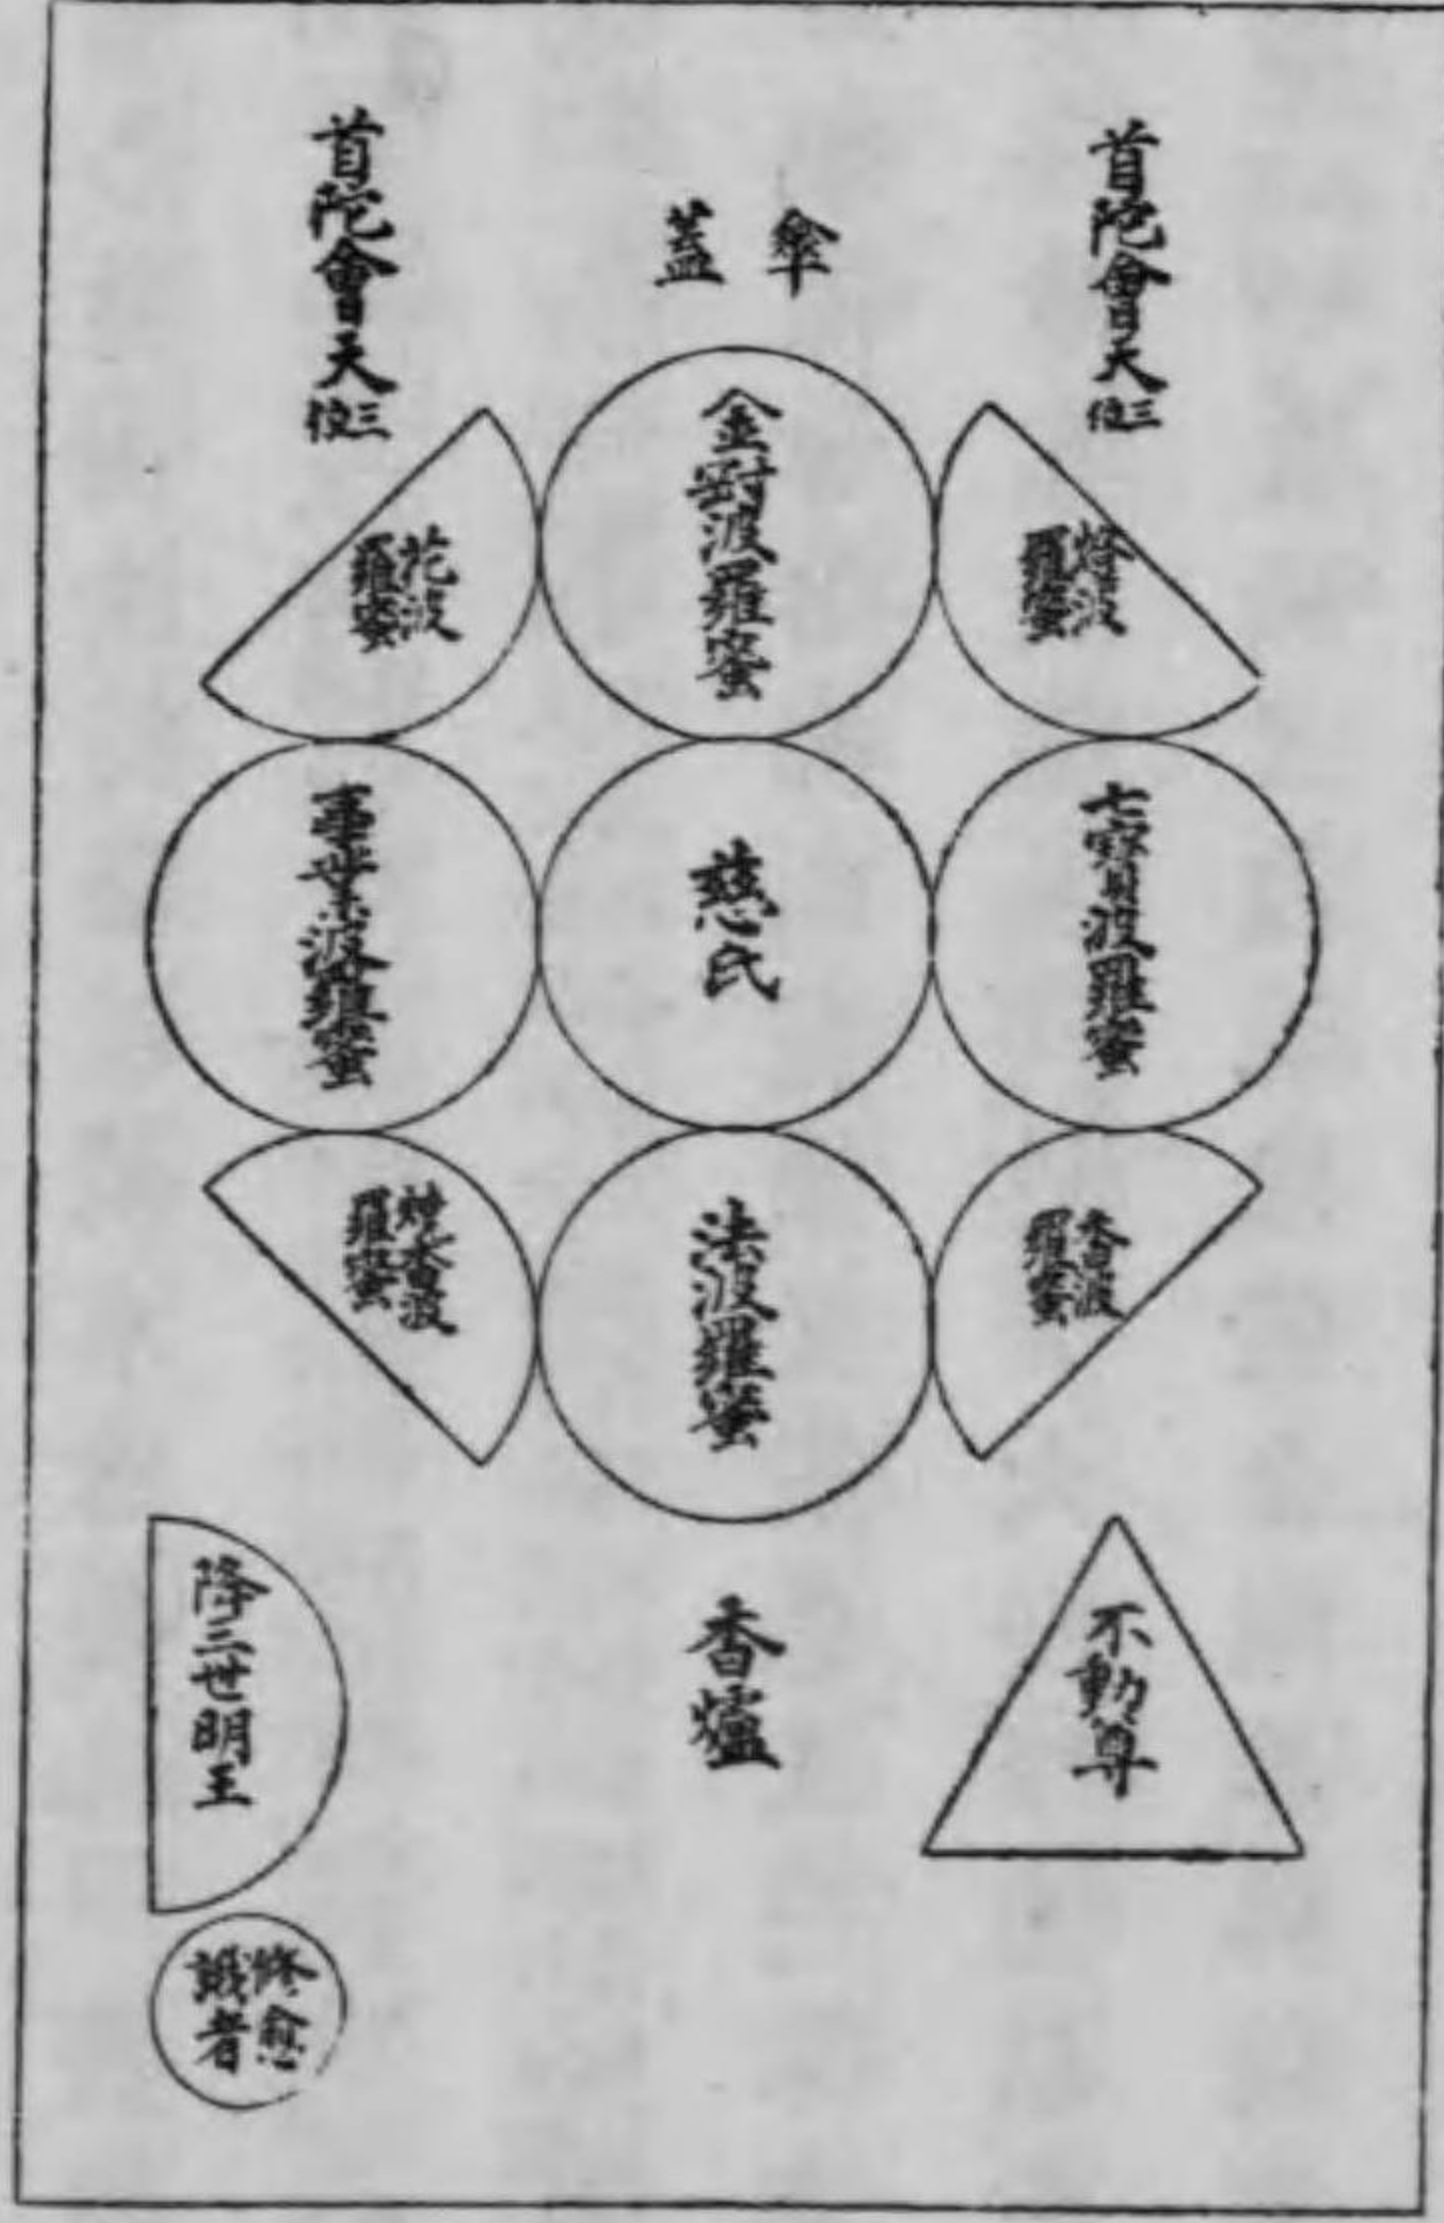 首陀會天三位
傘蓋
首陀會天三位
燈波羅蜜
金剛波羅蜜
花波羅蜜
七寶波羅蜜
慈氏
事業波羅蜜
香波羅蜜
法波羅蜜
燒香波羅蜜
不動尊
香爐
降三世明王
修愈誐者